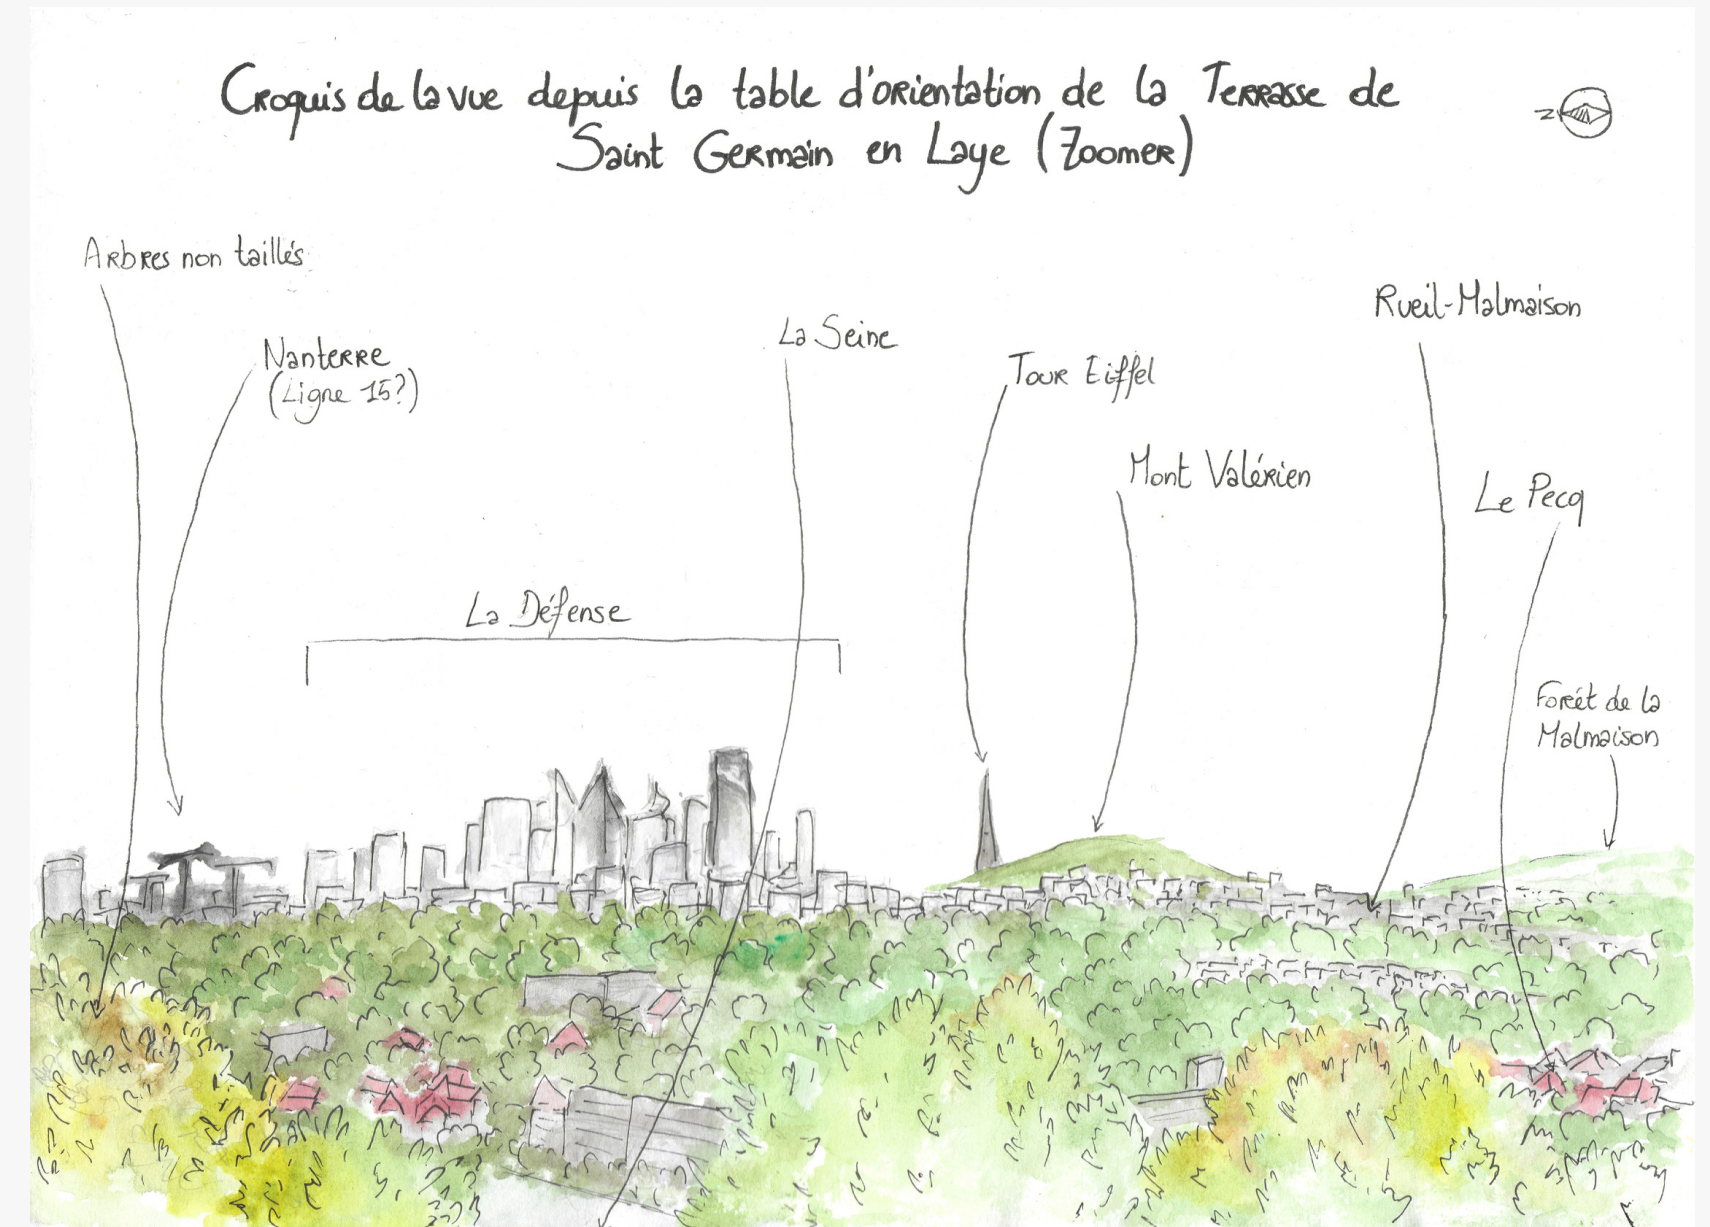 Croquis de la vue depuis la table d'orientation de la Terrasse de
Saint Germain en Laye (Zoomer)
N
Arbres non taillés
Nanterre
(Ligne 15?)
La Seine
Tour Eiffel
Rueil-Malmaison
Mont Valérien
Le Pecq
La Défense
Forêt de la
Malmaison